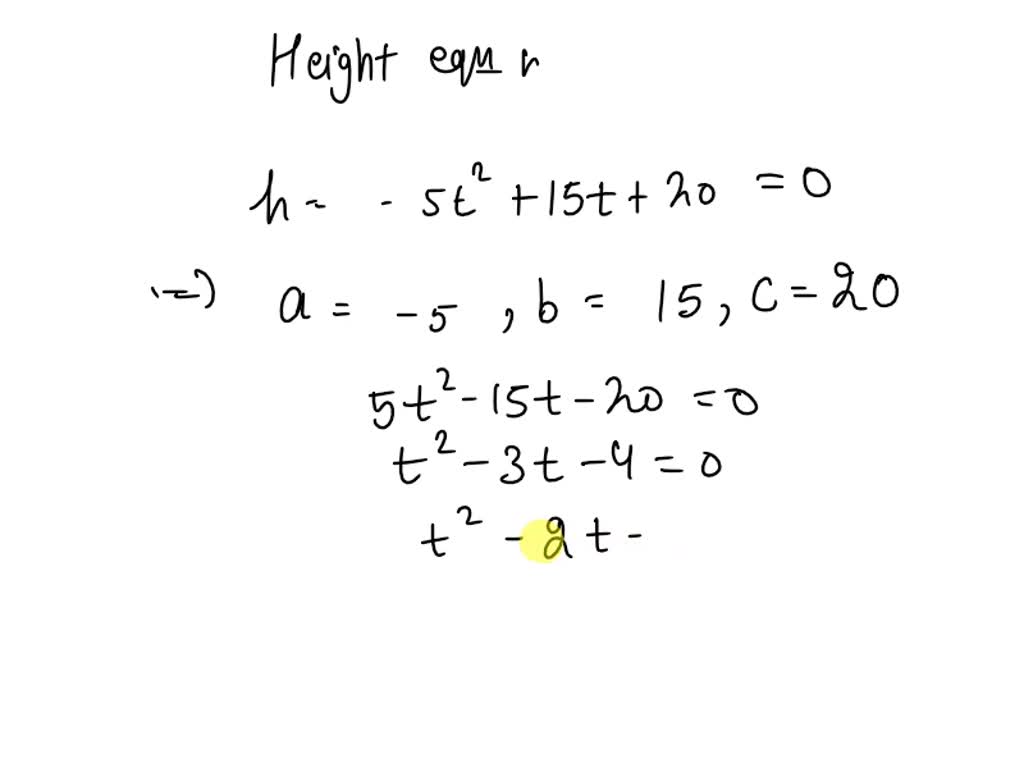 Height equn r
h = - 5t² + 15t + 20 = 0
=) a = - 5 , b = 15 , c = 20
5t² - 15t - 20 = 0
t² - 3t - 4 = 0
t² - 2t -